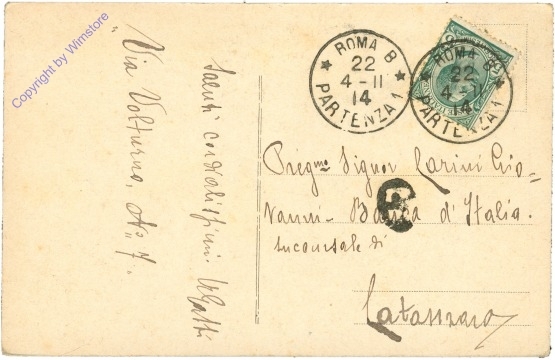 Copyright by Wimstore
Saluti cordialissimi
"Via Volturno, No 7.
ROMA 8
22
4-11
14
PARTENZA 1
ROMA 8
22
4-11
14
PARTENZA 1
Pregmo Signor Carini Gio-
vanni - Banca d'Italia.
succursale di
Catanzaro